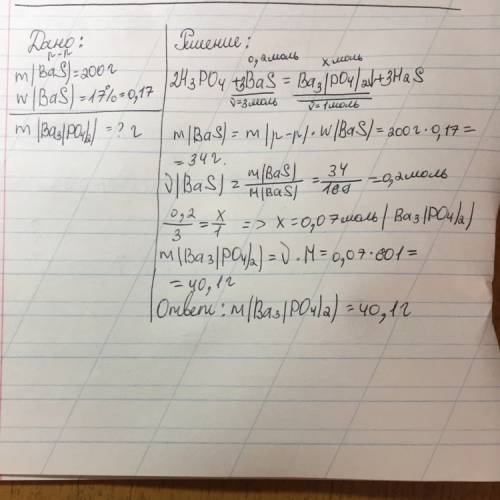 Дано:
р-р
m(BaS)=200г
w(BaS)=17%=0,17
m(Ba3(PO4)2)=? г
Решение:
0,2моль x моль
2H3PO4+3BaS=Ba3(PO4)2↓+3H2S
ν=3моль ν=1моль
m(BaS)=m(р-р)·w(BaS)=200г·0,17=
=34г.
ν(BaS)=m(BaS)/M(BaS)=34/169=0,2моль
0,2/3=x/1 => x=0,07моль(Ba3(PO4)2)
m(Ba3(PO4)2)=ν·M=0,07·601=
=40,1г
Ответ: m(Ba3(PO4)2)=40,1г